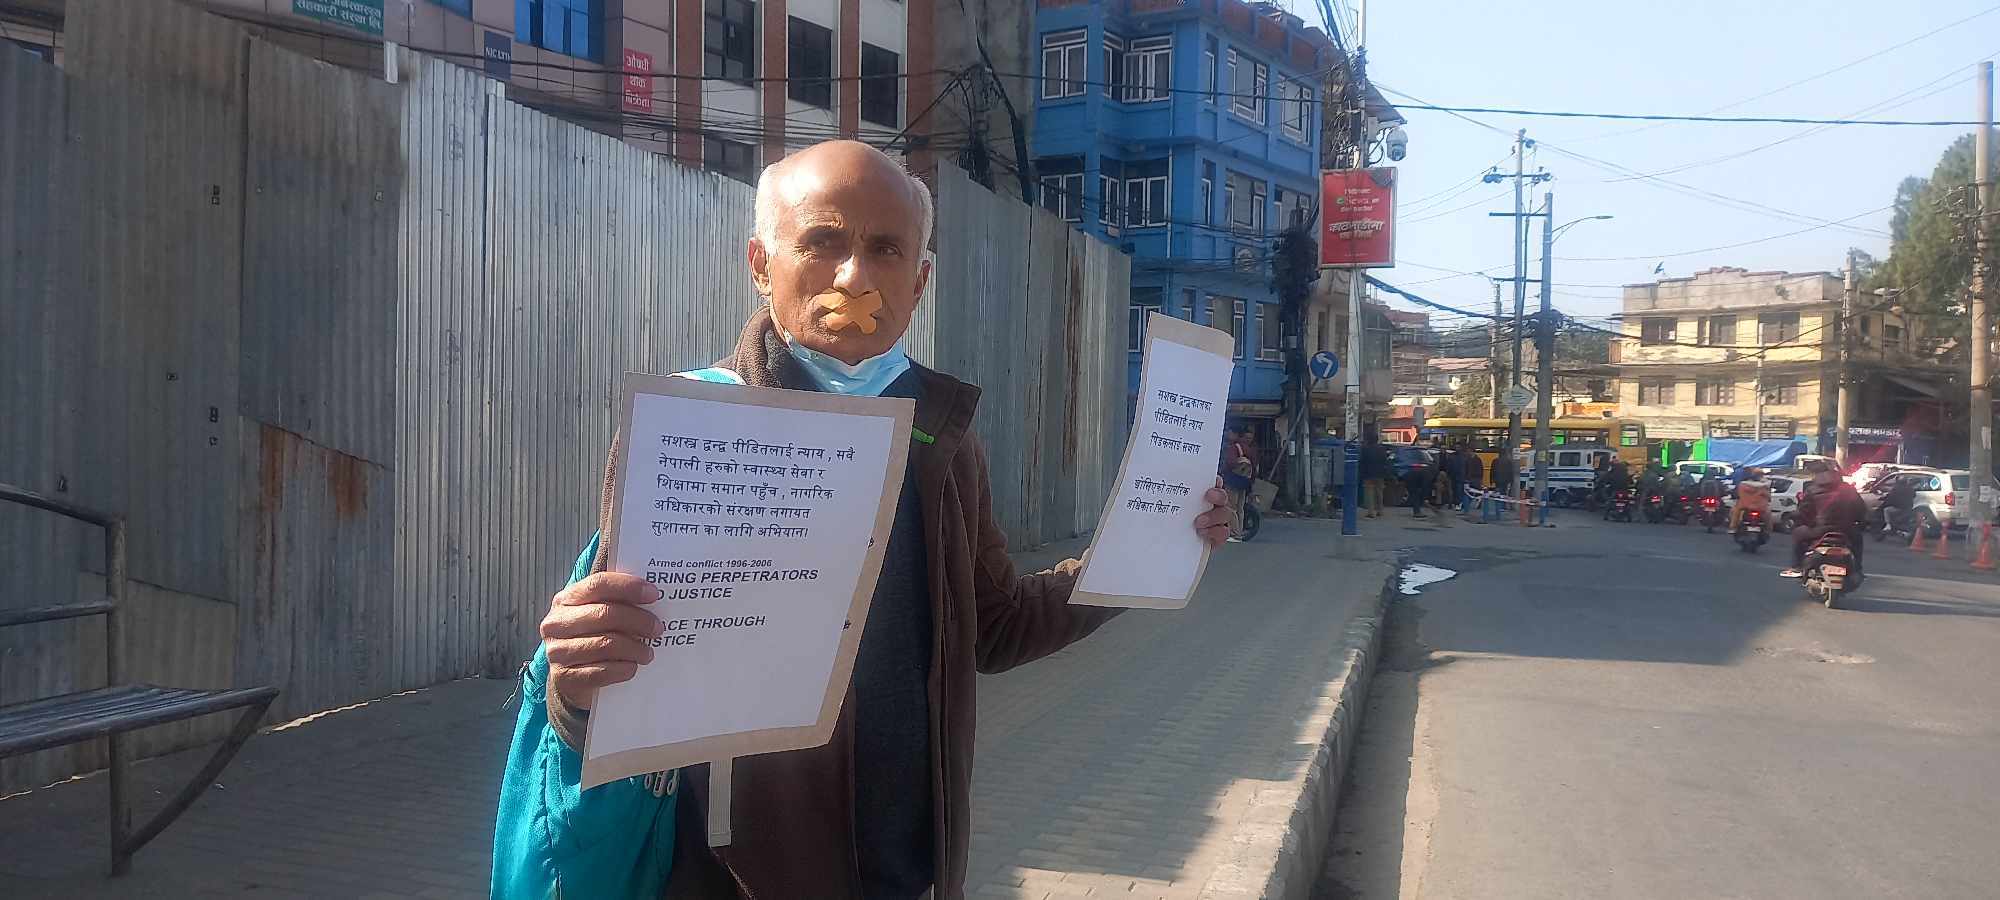 सहकारी संस्था लि
औषधी
थोक
बिक्रेता
सशस्त्र द्वन्द्व पीडितलाई न्याय , सवै
नेपाली हरुको स्वास्थ्य सेवा र
शिक्षामा समान पहुँच , नागरिक
अधिकारको संरक्षण लगायत
सुशासन का लागि अभियान।
Armed conflict 1996-2006
BRING PERPETRATORS
O JUSTICE
ACE THROUGH
USTICE
सशस्त्र द्वन्द्वकालका
पीडितलाई न्याय
पिडकलाई सजाय
खोसिएको नागरिक
अधिकार फिर्ता गर